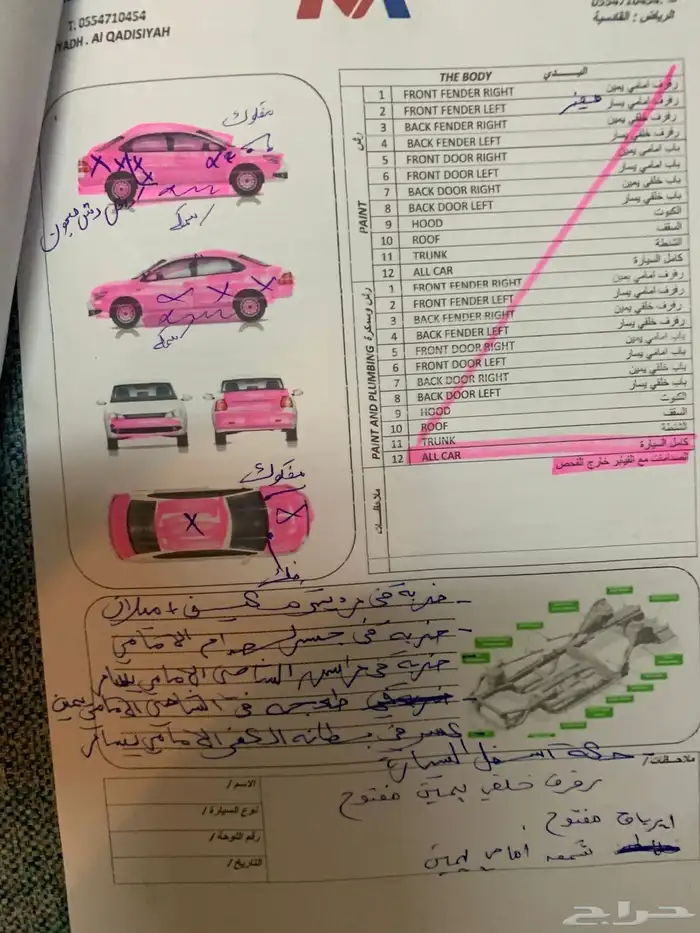 T: 0554710454
YADH . Al QADISIYAH
الرياض : القادسية
THE BODY البـــــــدي
PAINT رش
1 FRONT FENDER RIGHT رفرف امامي يمين
2 FRONT FENDER LEFT رفرف امامي يسار
3 BACK FENDER RIGHT رفرف خلفي يمين
4 BACK FENDER LEFT رفرف خلفي يسار
5 FRONT DOOR RIGHT باب امامي يمين
6 FRONT DOOR LEFT باب امامي يسار
7 BACK DOOR RIGHT باب خلفي يمين
8 BACK DOOR LEFT باب خلفي يسار
9 HOOD الكبوت
10 ROOF السقف
11 TRUNK الشنطة
12 ALL CAR كامل السيارة
PAINT AND PLUMBING رش وسمكرة
1 FRONT FENDER RIGHT رفرف امامي يمين
2 FRONT FENDER LEFT رفرف امامي يسار
3 BACK FENDER RIGHT رفرف خلفي يمين
4 BACK FENDER LEFT رفرف خلفي يسار
5 FRONT DOOR RIGHT باب امامي يمين
6 FRONT DOOR LEFT باب امامي يسار
7 BACK DOOR RIGHT باب خلفي يمين
8 BACK DOOR LEFT باب خلفي يسار
9 HOOD الكبوت
10 ROOF السقف
11 TRUNK الشنطة
12 ALL CAR كامل السيارة
الصدامات مع الفيبر خارج الفحص
ملاحظـــات
مفكوك
سمكره
سمكره
مفكوك
فك
- ضربة في
- ضربة في جسر صدام الامامي
ضربة في راس الشاصي الامامي يسار
في الشاصي الامامي يمين
كسر في بطانة الامامي يسار
ملاحظات /
- حكة اسفل السيارة
رفرف خلفي يمين مفتوح
ايرباق مفتوح
شمعه امامي يمين
الاسم /
نوع السيارة /
رقم اللوحة /
التاريخ /
حراج